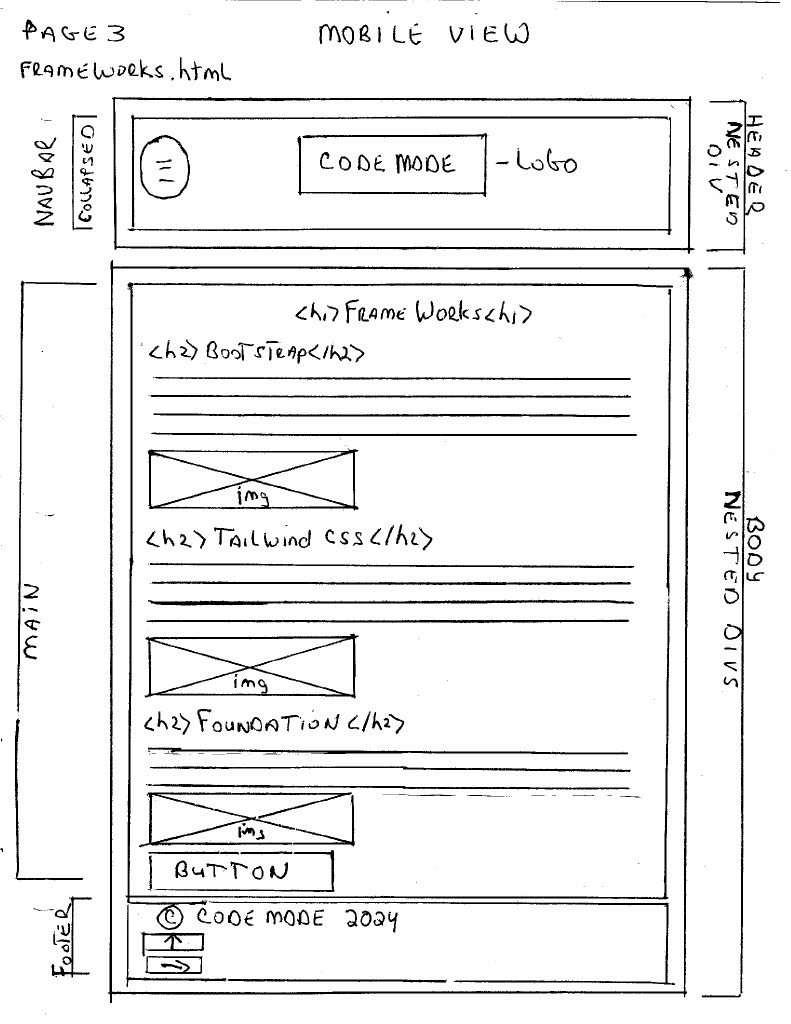 PAGE 3
MOBILE VIEW
FRAMEWORKS.html
NAVBAR
COLLAPSED
CODE MODE
- LOGO
HEADER
NESTED
DIV
<h1> FRAME WORKS<h1>
<h2> BOOTSTRAP</h2>
img
<h2> TAILWind CSS</h2>
img
<h2> FOUNDATION </h2>
img
BUTTON
MAIN
BODY
NESTED DIVS
FOOTER
© CODE MODE 2024